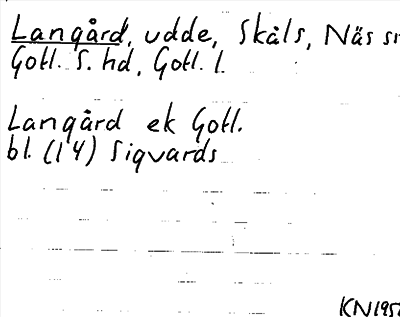 Langård, udde, Skåls, Näs sn
Gotl. S. hd, Gotl. l.
Langård ek Gotl.
bl. (14) Sigvards
KN195